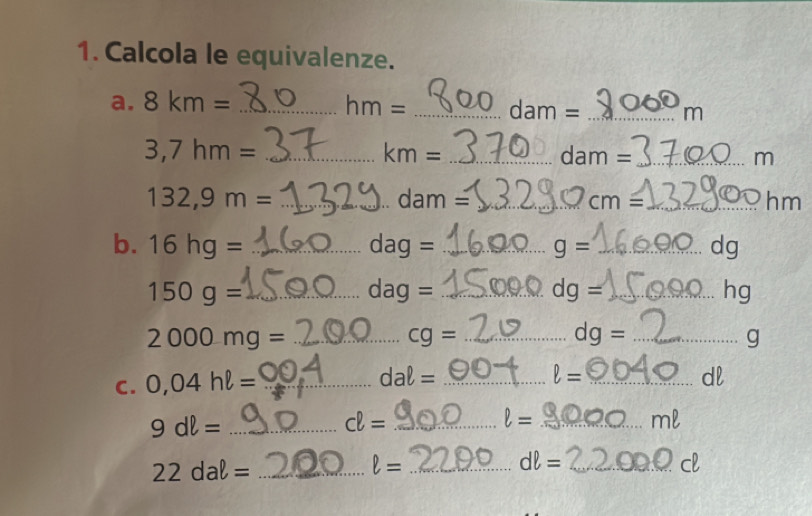 1. Calcola le equivalenze.
a. 8 km = 80 hm = 800 dam = 8000 m
3,7 hm = 37 km = 370 dam = 3700 m
132,9 m = 1329 dam = 13290 cm = 132900 hm
b. 16 hg = 160 dag = 1600 g = 16000 dg
150 g = 1500 dag = 15000 dg = 15000 hg
2 000 mg = 200 cg = 20 dg = 2 g
c. 0,04 hℓ = 00,4 daℓ = 004 ℓ = 0040 dℓ
9 dℓ = 90 cℓ = 900 ℓ = 9000 mℓ
22 daℓ = 200 ℓ = 2200 dℓ = 22000 cℓ